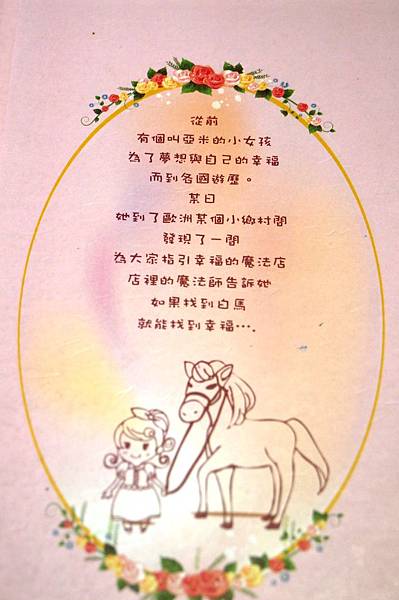 從前
有個叫亞米的小女孩
為了夢想與自己的幸福
而到各國遊歷。
某日
她到了歐洲某個小鄉村間
發現了一間
為大家指引幸福的魔法店
店裡的魔法師告訴她
如果找到白馬
就能找到幸福⋯.